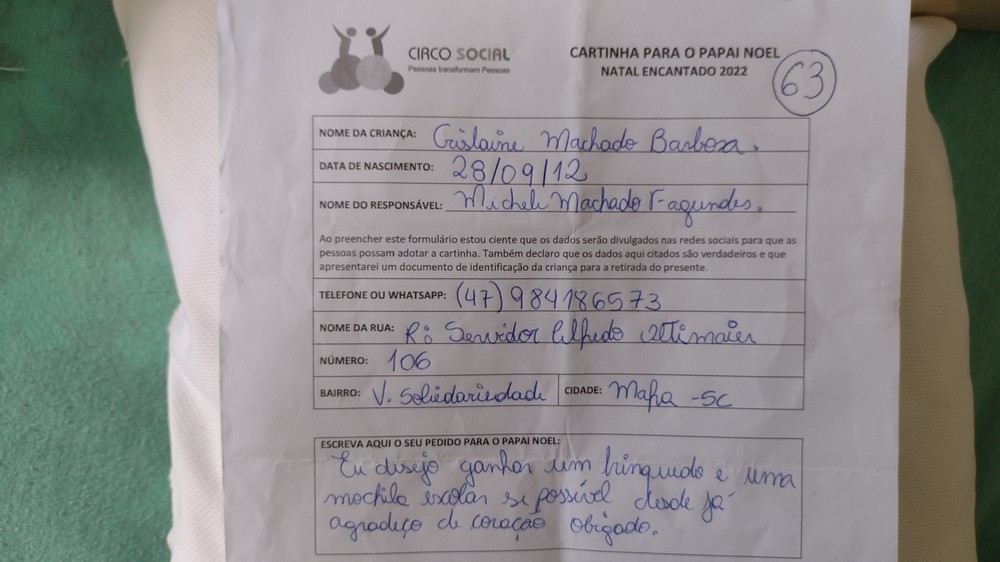 CIRCO SOCIAL
Pessoas transformam Pessoas
CARTINHA PARA O PAPAI NOEL
NATAL ENCANTADO 2022
63
NOME DA CRIANÇA: Crislaine Machado Barboza.
DATA DE NASCIMENTO: 28/09/12
NOME DO RESPONSÁVEL: Micheli Machado Fagundes.
Ao preencher este formulário estou ciente que os dados serão divulgados nas redes sociais para que as
pessoas possam adotar a cartinha. Também declaro que os dados aqui citados são verdadeiros e que
apresentarei um documento de identificação da criança para a retirada do presente.
TELEFONE OU WHATSAPP: (47) 984186573
NOME DA RUA: R: Servidor Alfredo Altimaier
NÚMERO: 106
BAIRRO: V. Soliedariedade CIDADE: Mafra -SC
ESCREVA AQUI O SEU PEDIDO PARA O PAPAI NOEL:
Eu disejo ganhar um brinquedo e uma
mochila escolar se possível desde já
agradeço de coração obigado.